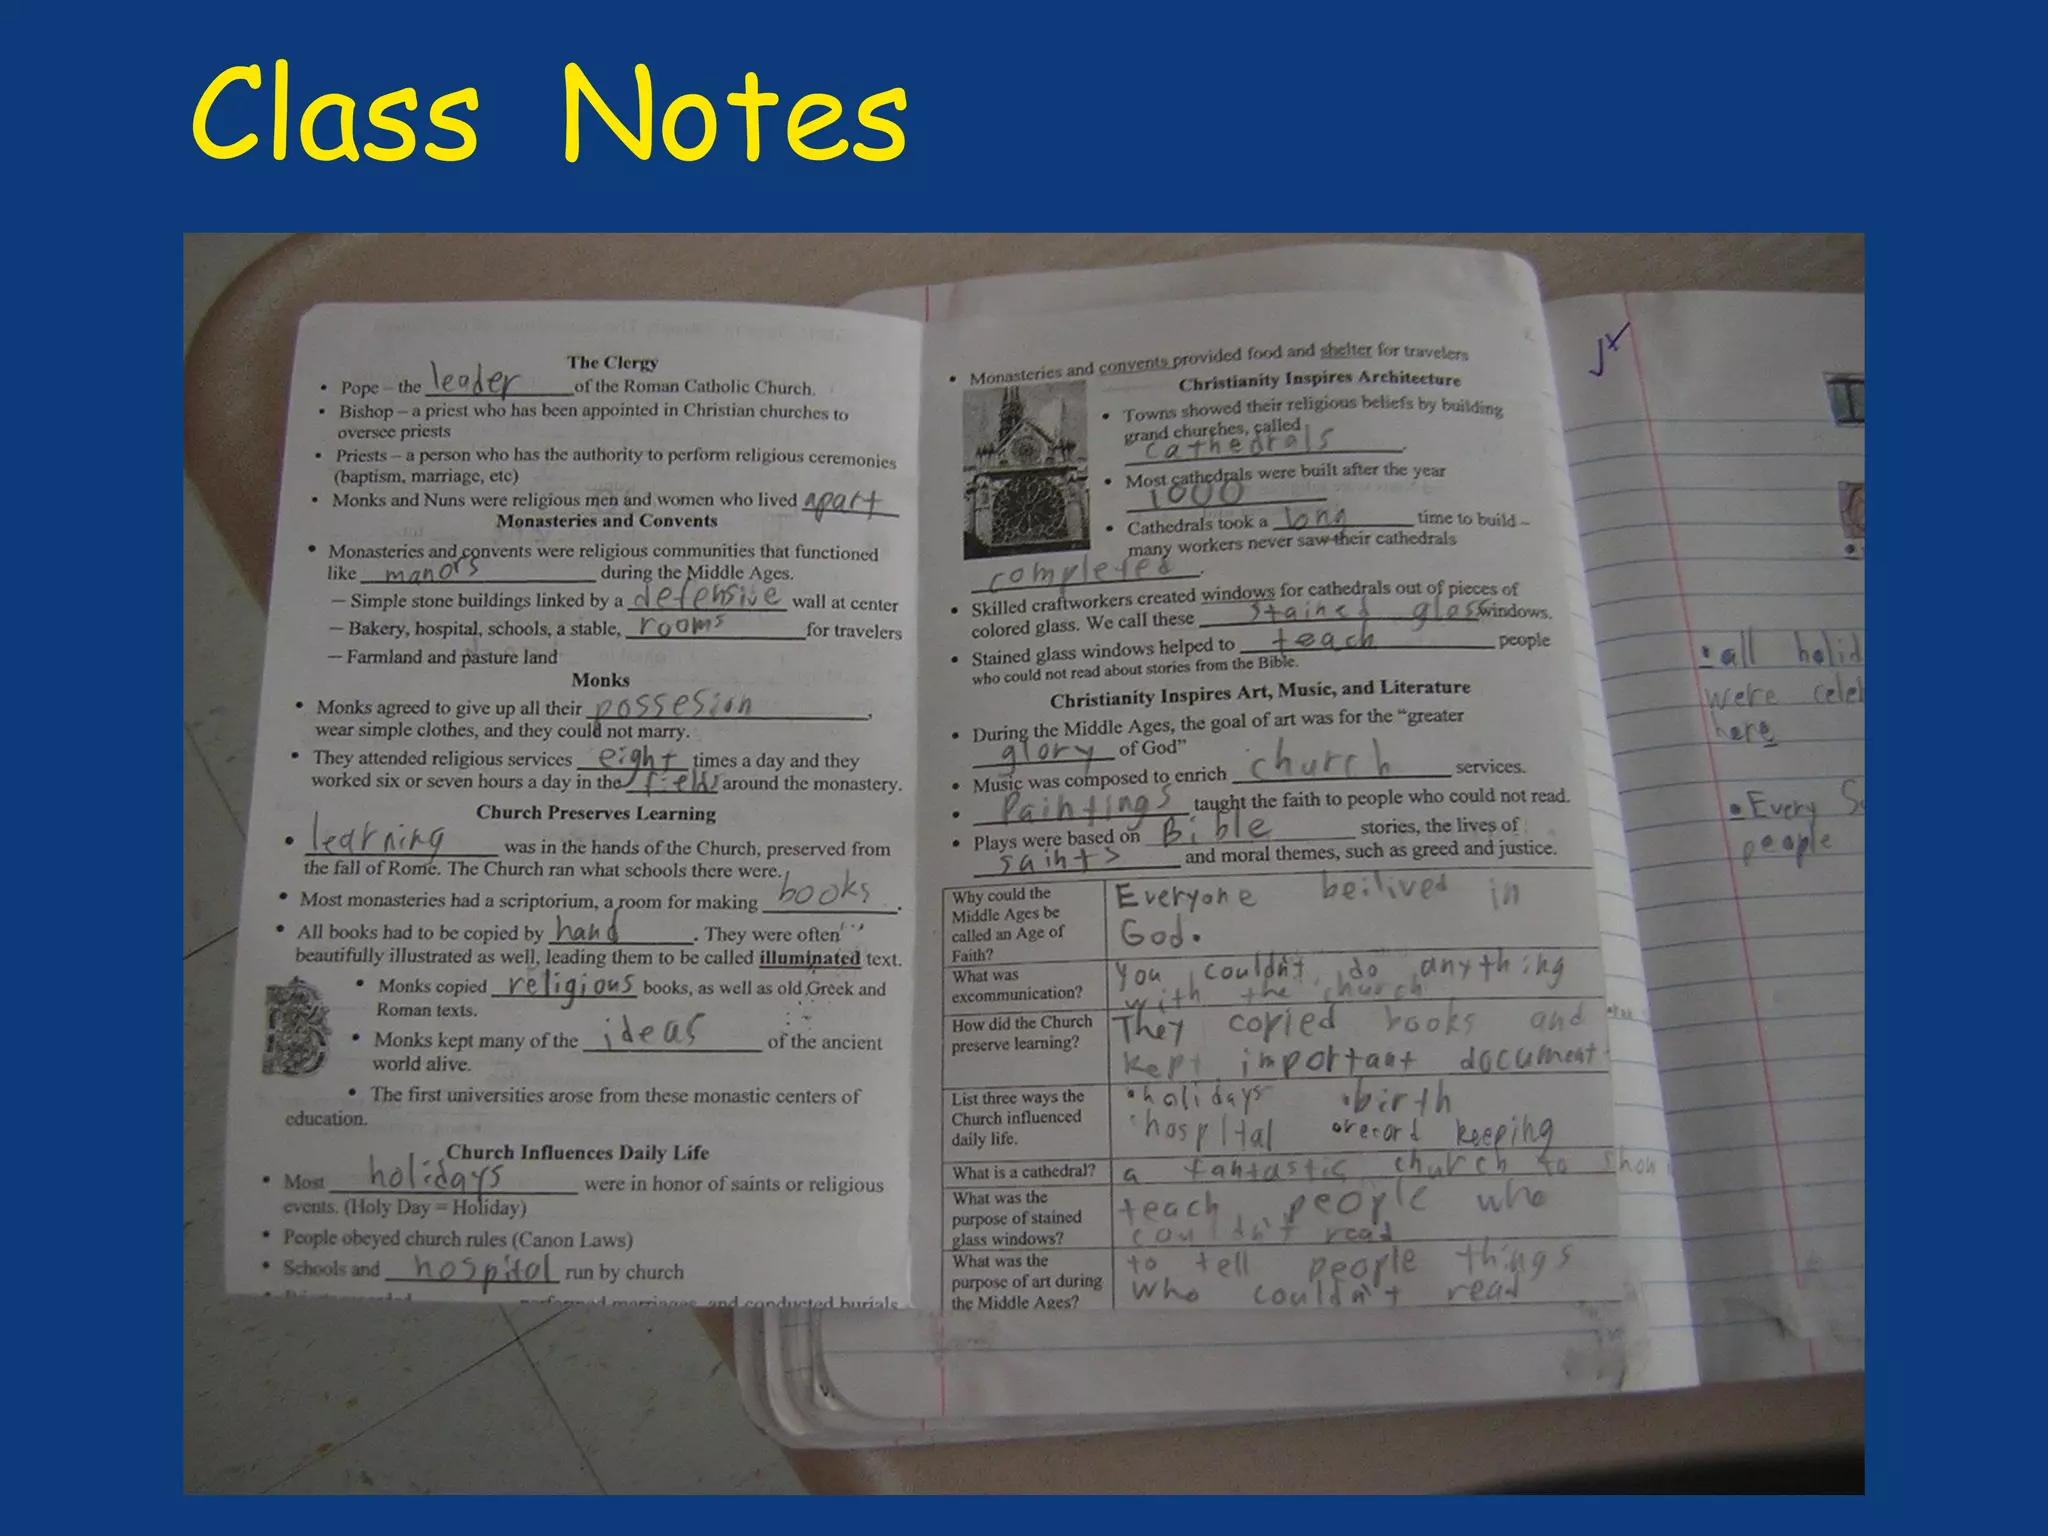 Class Notes
The Clergy
• Pope – the leader of the Roman Catholic Church.
• Bishop – a priest who has been appointed in Christian churches to
oversee priests
• Priests – a person who has the authority to perform religious ceremonies
(baptism, marriage, etc)
• Monks and Nuns were religious men and women who lived apart
Monasteries and Convents
• Monasteries and convents were religious communities that functioned
like manors during the Middle Ages.
– Simple stone buildings linked by a defensive wall at center
– Bakery, hospital, schools, a stable, rooms for travelers
– Farmland and pasture land
Monks
• Monks agreed to give up all their possesion,
wear simple clothes, and they could not marry.
• They attended religious services eight times a day and they
worked six or seven hours a day in the fields around the monastery.
Church Preserves Learning
• learning was in the hands of the Church, preserved from
the fall of Rome. The Church ran what schools there were.
• Most monasteries had a scriptorium, a room for making books.
• All books had to be copied by hand. They were often
beautifully illustrated as well, leading them to be called illuminated text.
• Monks copied religious books, as well as old Greek and
Roman texts.
• Monks kept many of the ideas of the ancient
world alive.
• The first universities arose from these monastic centers of
education.
Church Influences Daily Life
• Most holidays were in honor of saints or religious
events. (Holy Day = Holiday)
• People obeyed church rules (Canon Laws)
• Schools and hospital run by church
performed marriages, and conducted burials
• Monasteries and convents provided food and shelter for travelers
Christianity Inspires Architecture
• Towns showed their religious beliefs by building
grand churches, called
cathedrals.
• Most cathedrals were built after the year
1000
• Cathedrals took a long time to build –
many workers never saw their cathedrals
completed.
• Skilled craftworkers created windows for cathedrals out of pieces of
colored glass. We call these stained glass windows.
• Stained glass windows helped to teach people
who could not read about stories from the Bible.
Christianity Inspires Art, Music, and Literature
• During the Middle Ages, the goal of art was for the "greater
glory of God"
• Music was composed to enrich church services.
• Paintings taught the faith to people who could not read.
• Plays were based on Bible stories, the lives of
saints and moral themes, such as greed and justice.
Why could the
Middle Ages be
called an Age of
Faith?
Everyone beilived in
God.
What was
excommunication?
You couldn't do anything
with the church
How did the Church
preserve learning?
They copied books and
kept important document
List three ways the
Church influenced
daily life.
•holidays •birth
•hospital •record keeping
What is a cathedral?
a fantastic church to show
What was the
purpose of stained
glass windows?
teach people who
couldn't read
What was the
purpose of art during
the Middle Ages?
to tell people things
who couldn't read
•all holid
were celeb
here
•Every S
people